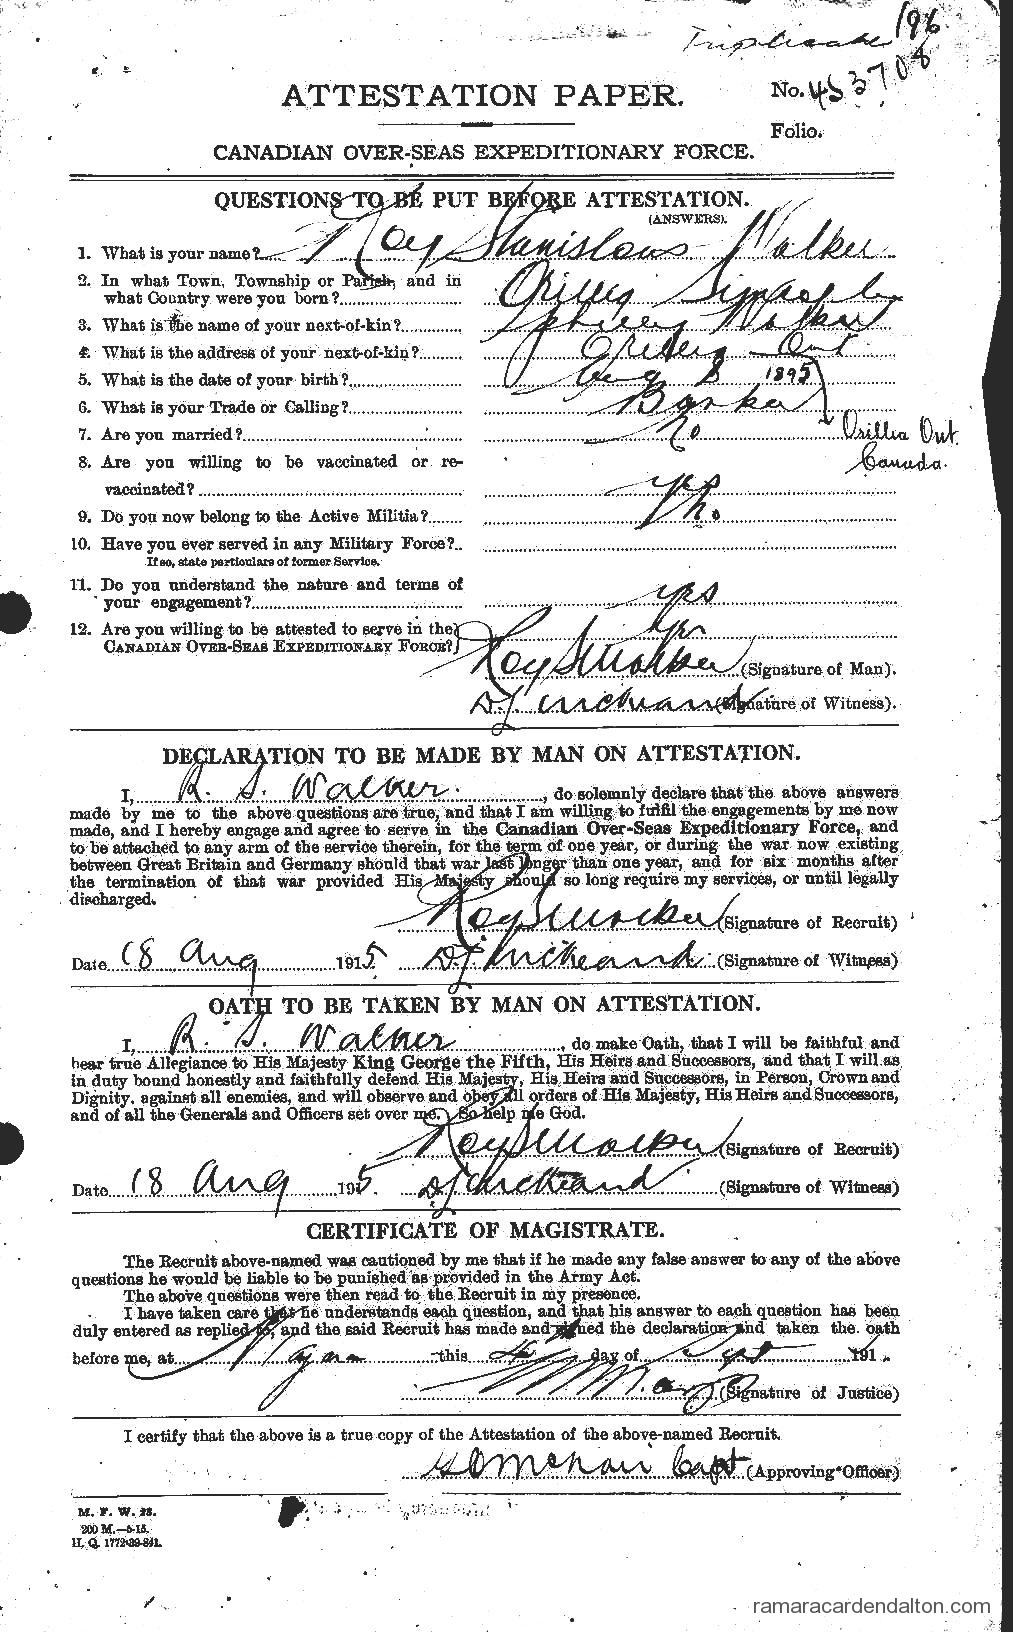 196
Triplicate
ATTESTATION PAPER.
No. 453708
Folio.
CANADIAN OVER-SEAS EXPEDITIONARY FORCE.
QUESTIONS TO BE PUT BEFORE ATTESTATION.
(ANSWERS).
1. What is your name? Roy Stanislaus Walker
2. In what Town, Township or Parish, and in
what Country were you born? Orillia
3. What is the name of your next-of-kin? Walker
4. What is the address of your next-of-kin? Orillia Ont
5. What is the date of your birth? Aug 8 1895
6. What is your Trade or Calling?
7. Are you married? No Orillia Ont.
Canada.
8. Are you willing to be vaccinated or re-
vaccinated? yes
9. Do you now belong to the Active Militia? No.
10. Have you ever served in any Military Force?
If so, state particulars of former Service.
11. Do you understand the nature and terms of
your engagement? yes
12. Are you willing to be attested to serve in the yes
CANADIAN OVER-SEAS EXPEDITIONARY FORCE?
Roy S Walker (Signature of Man).
(Signature of Witness).
DECLARATION TO BE MADE BY MAN ON ATTESTATION.
I, R. S. Walker, do solemnly declare that the above answers
made by me to the above questions are true, and that I am willing to fulfil the engagements by me now
made, and I hereby engage and agree to serve in the Canadian Over-Seas Expeditionary Force, and
to be attached to any arm of the service therein, for the term of one year, or during the war now existing
between Great Britain and Germany should that war last longer than one year, and for six months after
the termination of that war provided His Majesty should so long require my services, or until legally
discharged.
Roy S Walker (Signature of Recruit)
Date 18 Aug 1915 (Signature of Witness)
OATH TO BE TAKEN BY MAN ON ATTESTATION.
I, R. S. Walker, do make Oath, that I will be faithful and
bear true Allegiance to His Majesty King George the Fifth, His Heirs and Successors, and that I will as
in duty bound honestly and faithfully defend His Majesty, His Heirs and Successors, in Person, Crown and
Dignity, against all enemies, and will observe and obey all orders of His Majesty, His Heirs and Successors,
and of all the Generals and Officers set over me. So help me God.
Roy S Walker (Signature of Recruit)
Date 18 Aug 1915. (Signature of Witness)
CERTIFICATE OF MAGISTRATE.
The Recruit above-named was cautioned by me that if he made any false answer to any of the above
questions he would be liable to be punished as provided in the Army Act.
The above questions were then read to the Recruit in my presence.
I have taken care that he understands each question, and that his answer to each question has been
duly entered as replied to, and the said Recruit has made and signed the declaration and taken the oath
before me, at Niagara this day of Sept 191
(Signature of Justice)
I certify that the above is a true copy of the Attestation of the above-named Recruit.
Capt (Approving Officer)
M. F. W. 23.
200 M.—6-15.
H. Q. 1772-39-841.
ramaracardendalton.com